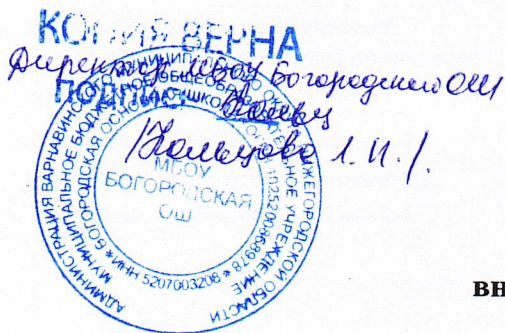 КОПИЯ ВЕРНА
Директор МБОУ Богородской ОШ
ПОДПИСЬ
/Кольцова Л. И./.
АДМИНИСТРАЦИЯ ВАРНАВИНСКОГО МУНИЦИПАЛЬНОГО НИЖЕГОРОДСКОЙ ОБЛАСТИ
МУНИЦИПАЛЬНОЕ БЮДЖЕТНОЕ ОБЩЕОБРАЗОВАТЕЛЬНОЕ УЧРЕЖДЕНИЕ
БОГОРОДСКАЯ ОСНОВНАЯ ШКОЛА
* ИНН 5207003208 *
МБОУ
БОГОРОДСКАЯ
ОШ
вн